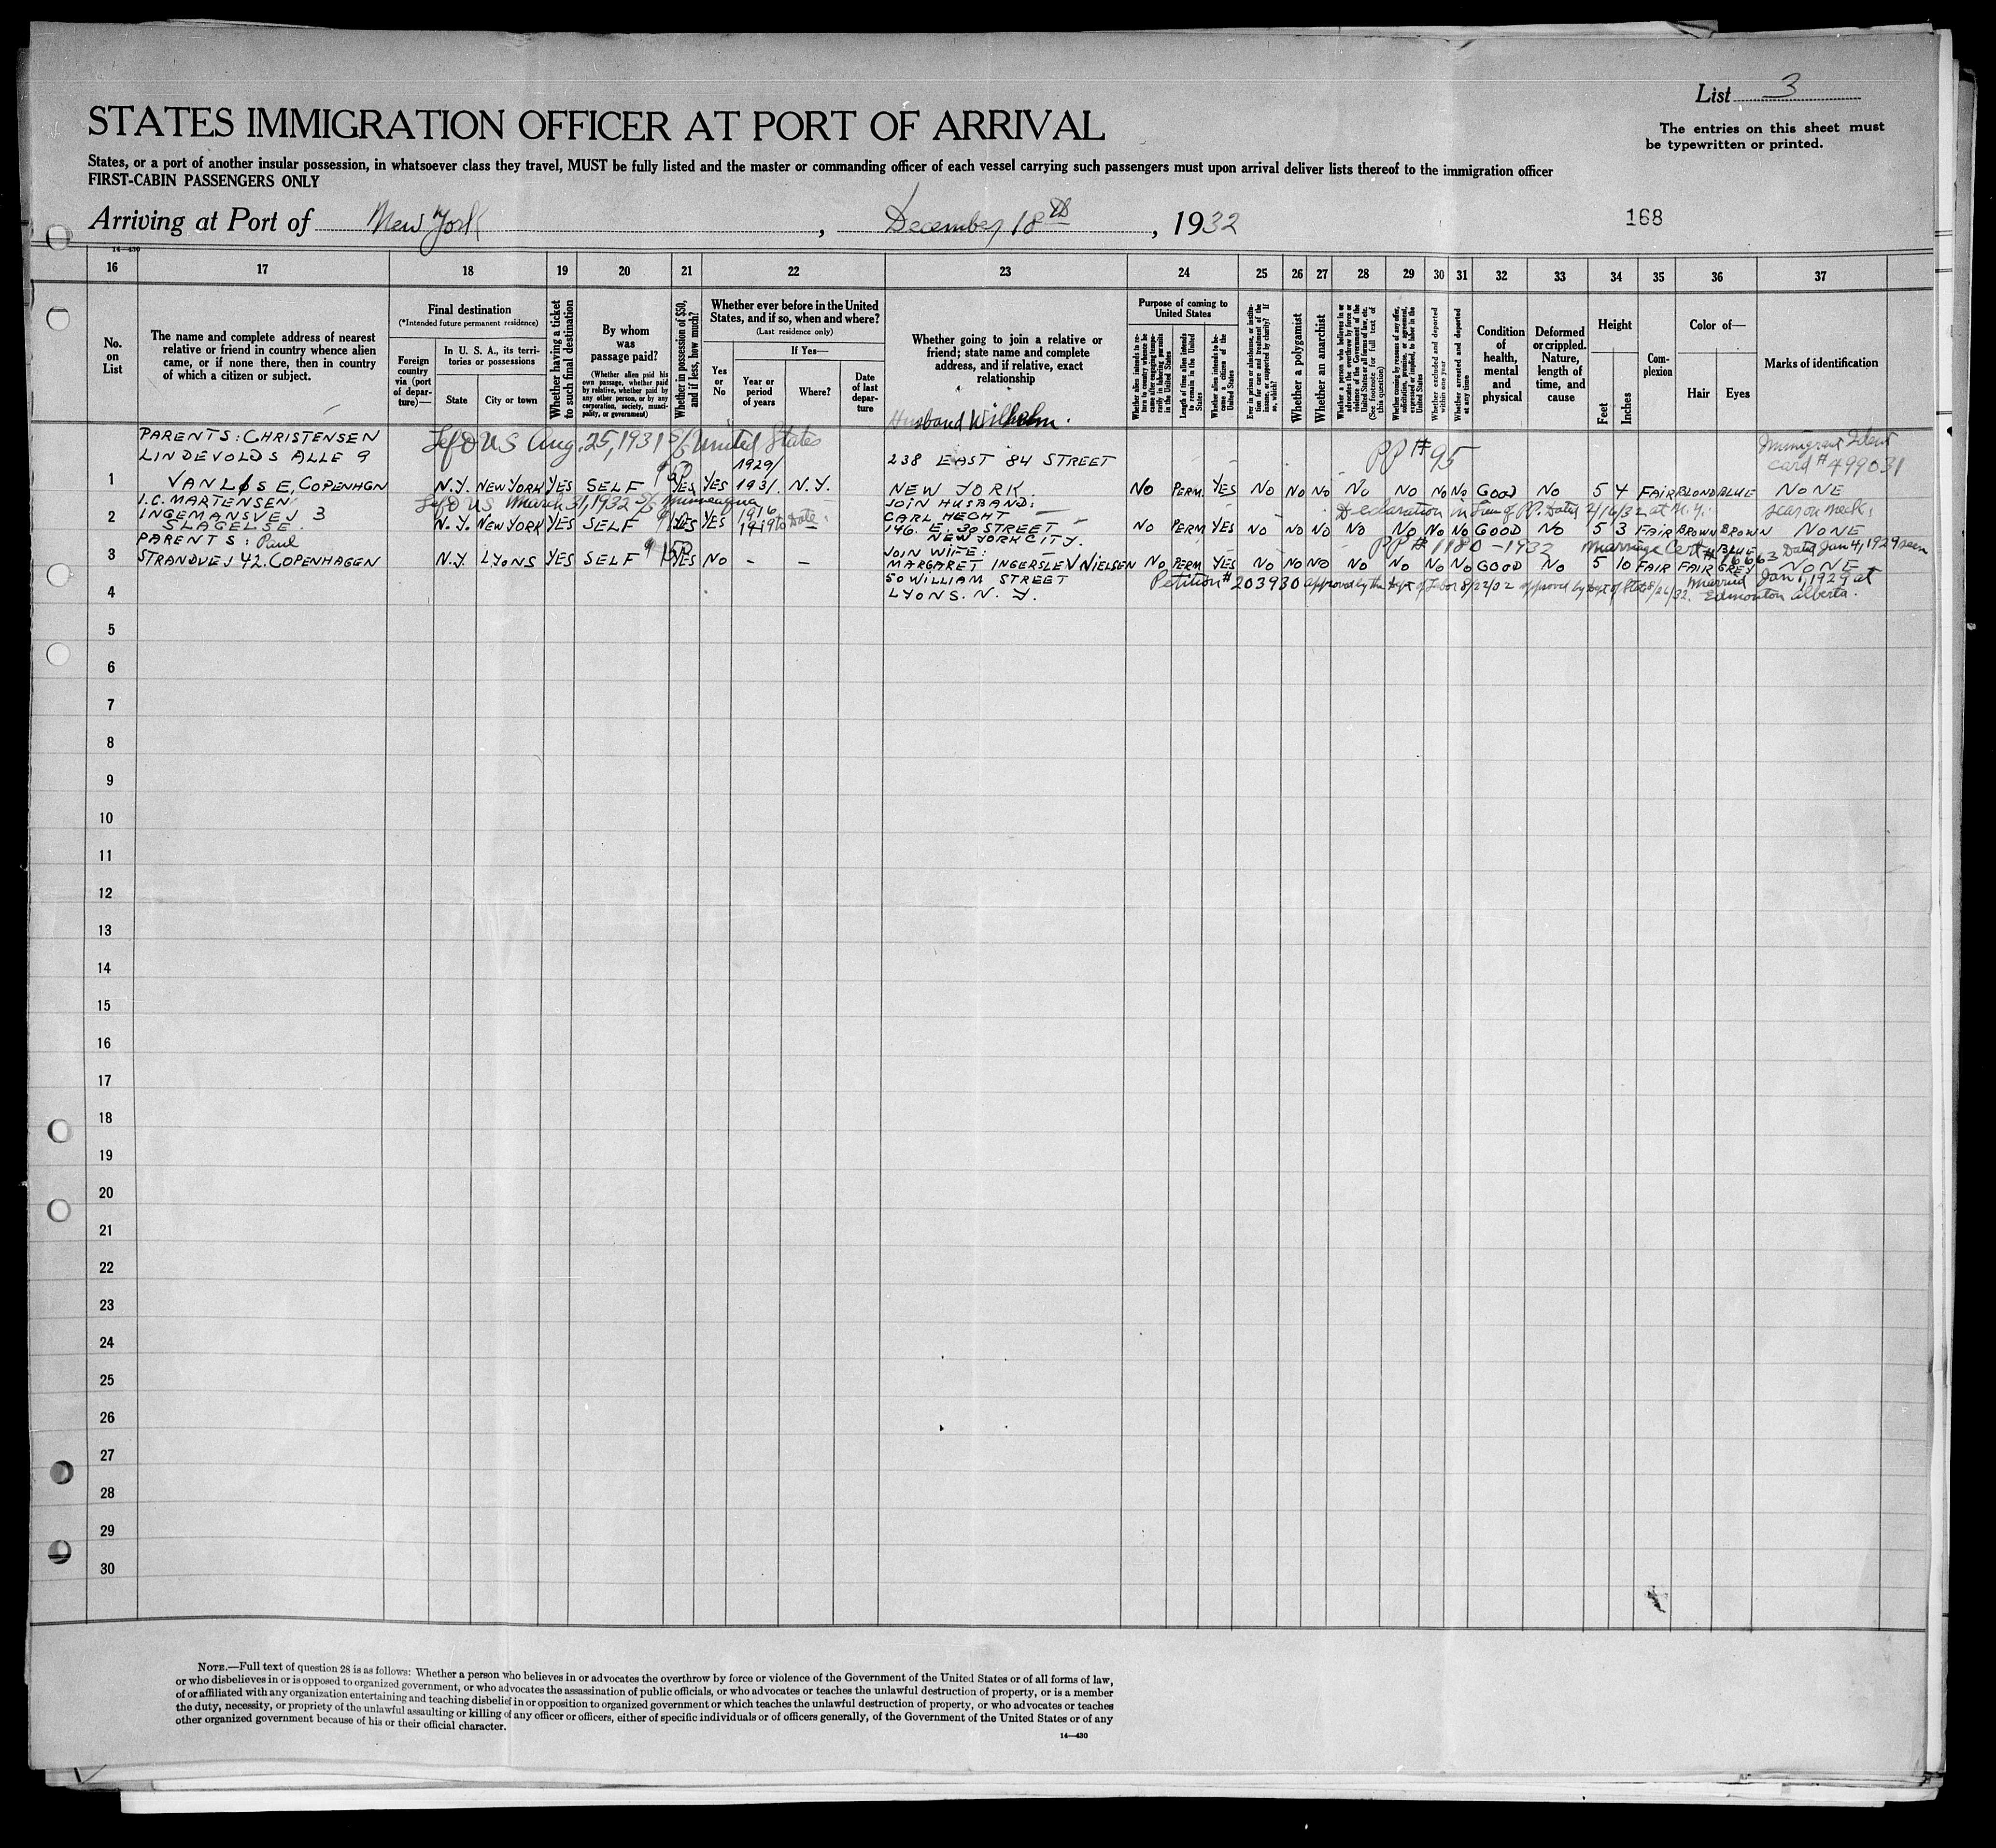 List 3
STATES IMMIGRATION OFFICER AT PORT OF ARRIVAL
The entries on this sheet must
be typewritten or printed.
States, or a port of another insular possession, in whatsoever class they travel, MUST be fully listed and the master or commanding officer of each vessel carrying such passengers must upon arrival deliver lists thereof to the immigration officer
FIRST-CABIN PASSENGERS ONLY
Arriving at Port of New York, December 18th, 1932
168
14—430
16 17 18 19 20 21 22 23 24 25 26 27 28 29 30 31 32 33 34 35 36 37
No.
on
List
The name and complete address of nearest
relative or friend in country whence alien
came, or if none there, then in country
of which a citizen or subject.
Final destination
(*Intended future permanent residence)
Foreign
country
via (port
of depar-
ture)—
In U. S. A., its terri-
tories or possessions
State
City or town
Whether having a ticket
to such final destination
By whom
was
passage paid?
(Whether alien paid his
own passage, whether paid
by relative, whether paid by
any other person, or by any
corporation, society, munici-
pality, or government)
Whether in possession of $50,
and if less, how much?
Whether ever before in the United
States, and if so, when and where?
(Last residence only)
Yes
or
No
If Yes—
Year or
period
of years
Where?
Date
of last
depar-
ture
Whether going to join a relative or
friend; state name and complete
address, and if relative, exact
relationship
Husband Wilhelm.
Purpose of coming to
United States
Whether alien intends to re-
turn to country whence he
came after engaging tempo-
rarily in laboring pursuits
in the United States
Length of time alien intends
to remain in the United
States
Whether alien intends to be-
come a citizen of the
United States
Ever in prison or almshouse, or institu-
tion for care and treatment of the
insane, or supported by charity? If
so, which?
Whether a polygamist
Whether an anarchist
Whether a person who believes in or
advocates the overthrow by force or
violence of the Government of the
United States or of all forms of law, etc.
(See footnote for full text of
this question)
Whether coming by reasons of any offer,
solicitation, promise, or agreement,
expressed or implied, to labor in the
United States
Whether excluded and deported
within one year
Whether arrested and deported
at any time
Condition
of
health,
mental
and
physical
Deformed
or crippled.
Nature,
length of
time, and
cause
Height
Feet
Inches
Com-
plexion
Color of—
Hair
Eyes
Marks of identification
PARENTS: CHRISTENSEN Left US Aug. 25, 1931 S/S United States Immigrant Ident
LINDEVOLDS ALLE 9 1929/ 238 EAST 84 STREET PP # 95 Card # 499031
1 VANLØSE, COPENHGN N.Y. NEW YORK YES SELF YES YES 1931. N.Y. NEW YORK NO PERM. YES NO NO NO NO NO NO NO GOOD NO 5 4 FAIR BLOND BLUE NONE
I.C. MARTENSEN Left US March 31, 1932 S/S JOIN HUSBAND:
INGEMANSVEJ 3 1916 CARL HECHT Declaration in lieu of PP. Dated 2/16/32 at N.Y. Scar on neck.
2 SLAGELSE. N.Y. NEW YORK YES SELF YES YES 1919 to Date 146. E. 30 STREET NO PERM YES NO NO NO NO NO NO NO GOOD NO 5 3 FAIR BROWN BROWN NONE
NEW YORK CITY.
PARENTS: Paul JOIN WIFE: PP # 1180 - 1932 Marriage Cert # 16663 Dated Jan 4, 1929 seen
3 STRANDVEJ 42. COPENHAGEN N.Y. LYONS YES SELF YES NO - - MARGARET INGERSLEV NIELSEN NO PERM YES NO NO NO NO NO NO NO GOOD NO 5 10 FAIR FAIR GREY BLUE NONE
50 WILLIAM STREET Petition # 203930 approved by the Dept of Labor 8/22/32 approved by Dept of State 8/26/32. Married Jan 1, 1929 at
4 LYONS. N. Y. Edmonton Alberta.
5
6
7
8
9
10
11
12
13
14
15
16
17
18
19
20
21
22
23
24
25
26
27
28
29
30
NOTE.—Full text of question 28 is as follows: Whether a person who believes in or advocates the overthrow by force or violence of the Government of the United States or of all forms of law,
or who disbelieves in or is opposed to organized government, or who advocates the assassination of public officials, or who advocates or teaches the unlawful destruction of property, or is a member
of or affiliated with any organization entertaining and teaching disbelief in or opposition to organized government or which teaches the unlawful destruction of property, or who advocates or teaches
the duty, necessity, or propriety of the unlawful assaulting or killing of any officer or officers, either of specific individuals or of officers generally, of the Government of the United States or of any
other organized government because of his or their official character.
14—430